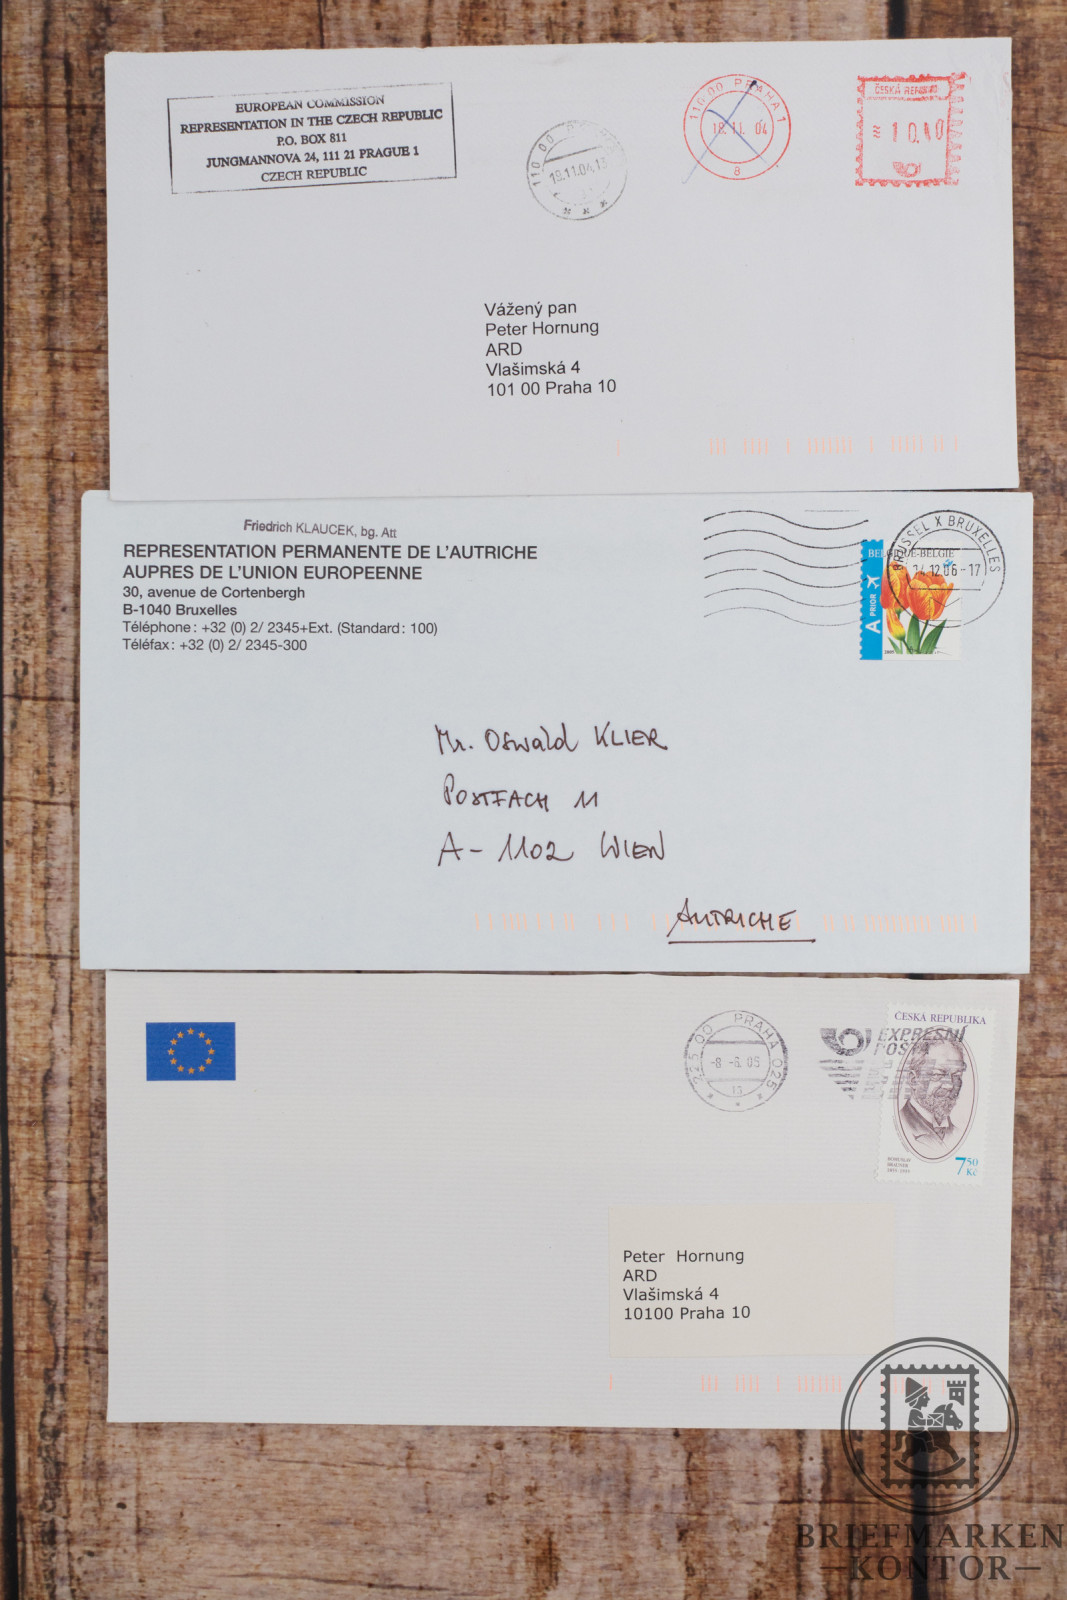 EUROPEAN COMMISSION
REPRESENTATION IN THE CZECH REPUBLIC
P.O. BOX 811
JUNGMANNOVA 24, 111 21 PRAGUE 1
CZECH REPUBLIC
110 00 P
19.11.04.13
* * *
110 00 PRAHA 1
18.11.04
8
ČESKÁ REPUBLIKA
Vážený pan
Peter Hornung
ARD
Vlašimská 4
101 00 Praha 10
Friedrich KLAUCEK, bg. Att
REPRESENTATION PERMANENTE DE L'AUTRICHE
AUPRES DE L'UNION EUROPEENNE
30, avenue de Cortenbergh
B-1040 Bruxelles
Téléphone: +32 (0) 2/ 2345+Ext. (Standard: 100)
Téléfax: +32 (0) 2/ 2345-300
BRUSSEL X BRUXELLES
12.06-17
BELGIQUE-BELGIE
A PRIOR
Mr. Oswald KLIER
POSTFACH 11
A- 1102 WIEN
AUTRICHE
225 00 PRAHA 025
-8.-6.05
EXPRESNÍ
POŠTA
ČESKÁ REPUBLIKA
7 50
Kč
Peter Hornung
ARD
Vlašimská 4
10100 Praha 10
BRIEFMARKEN
KONTOR